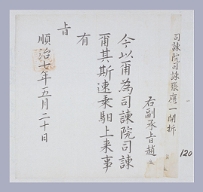 司諫院司諫張應一開拆
右副承旨趙
今以爾爲司諫院司諫
爾其斯速乘馹上来事
有
旨
順治七年五月二十日
120